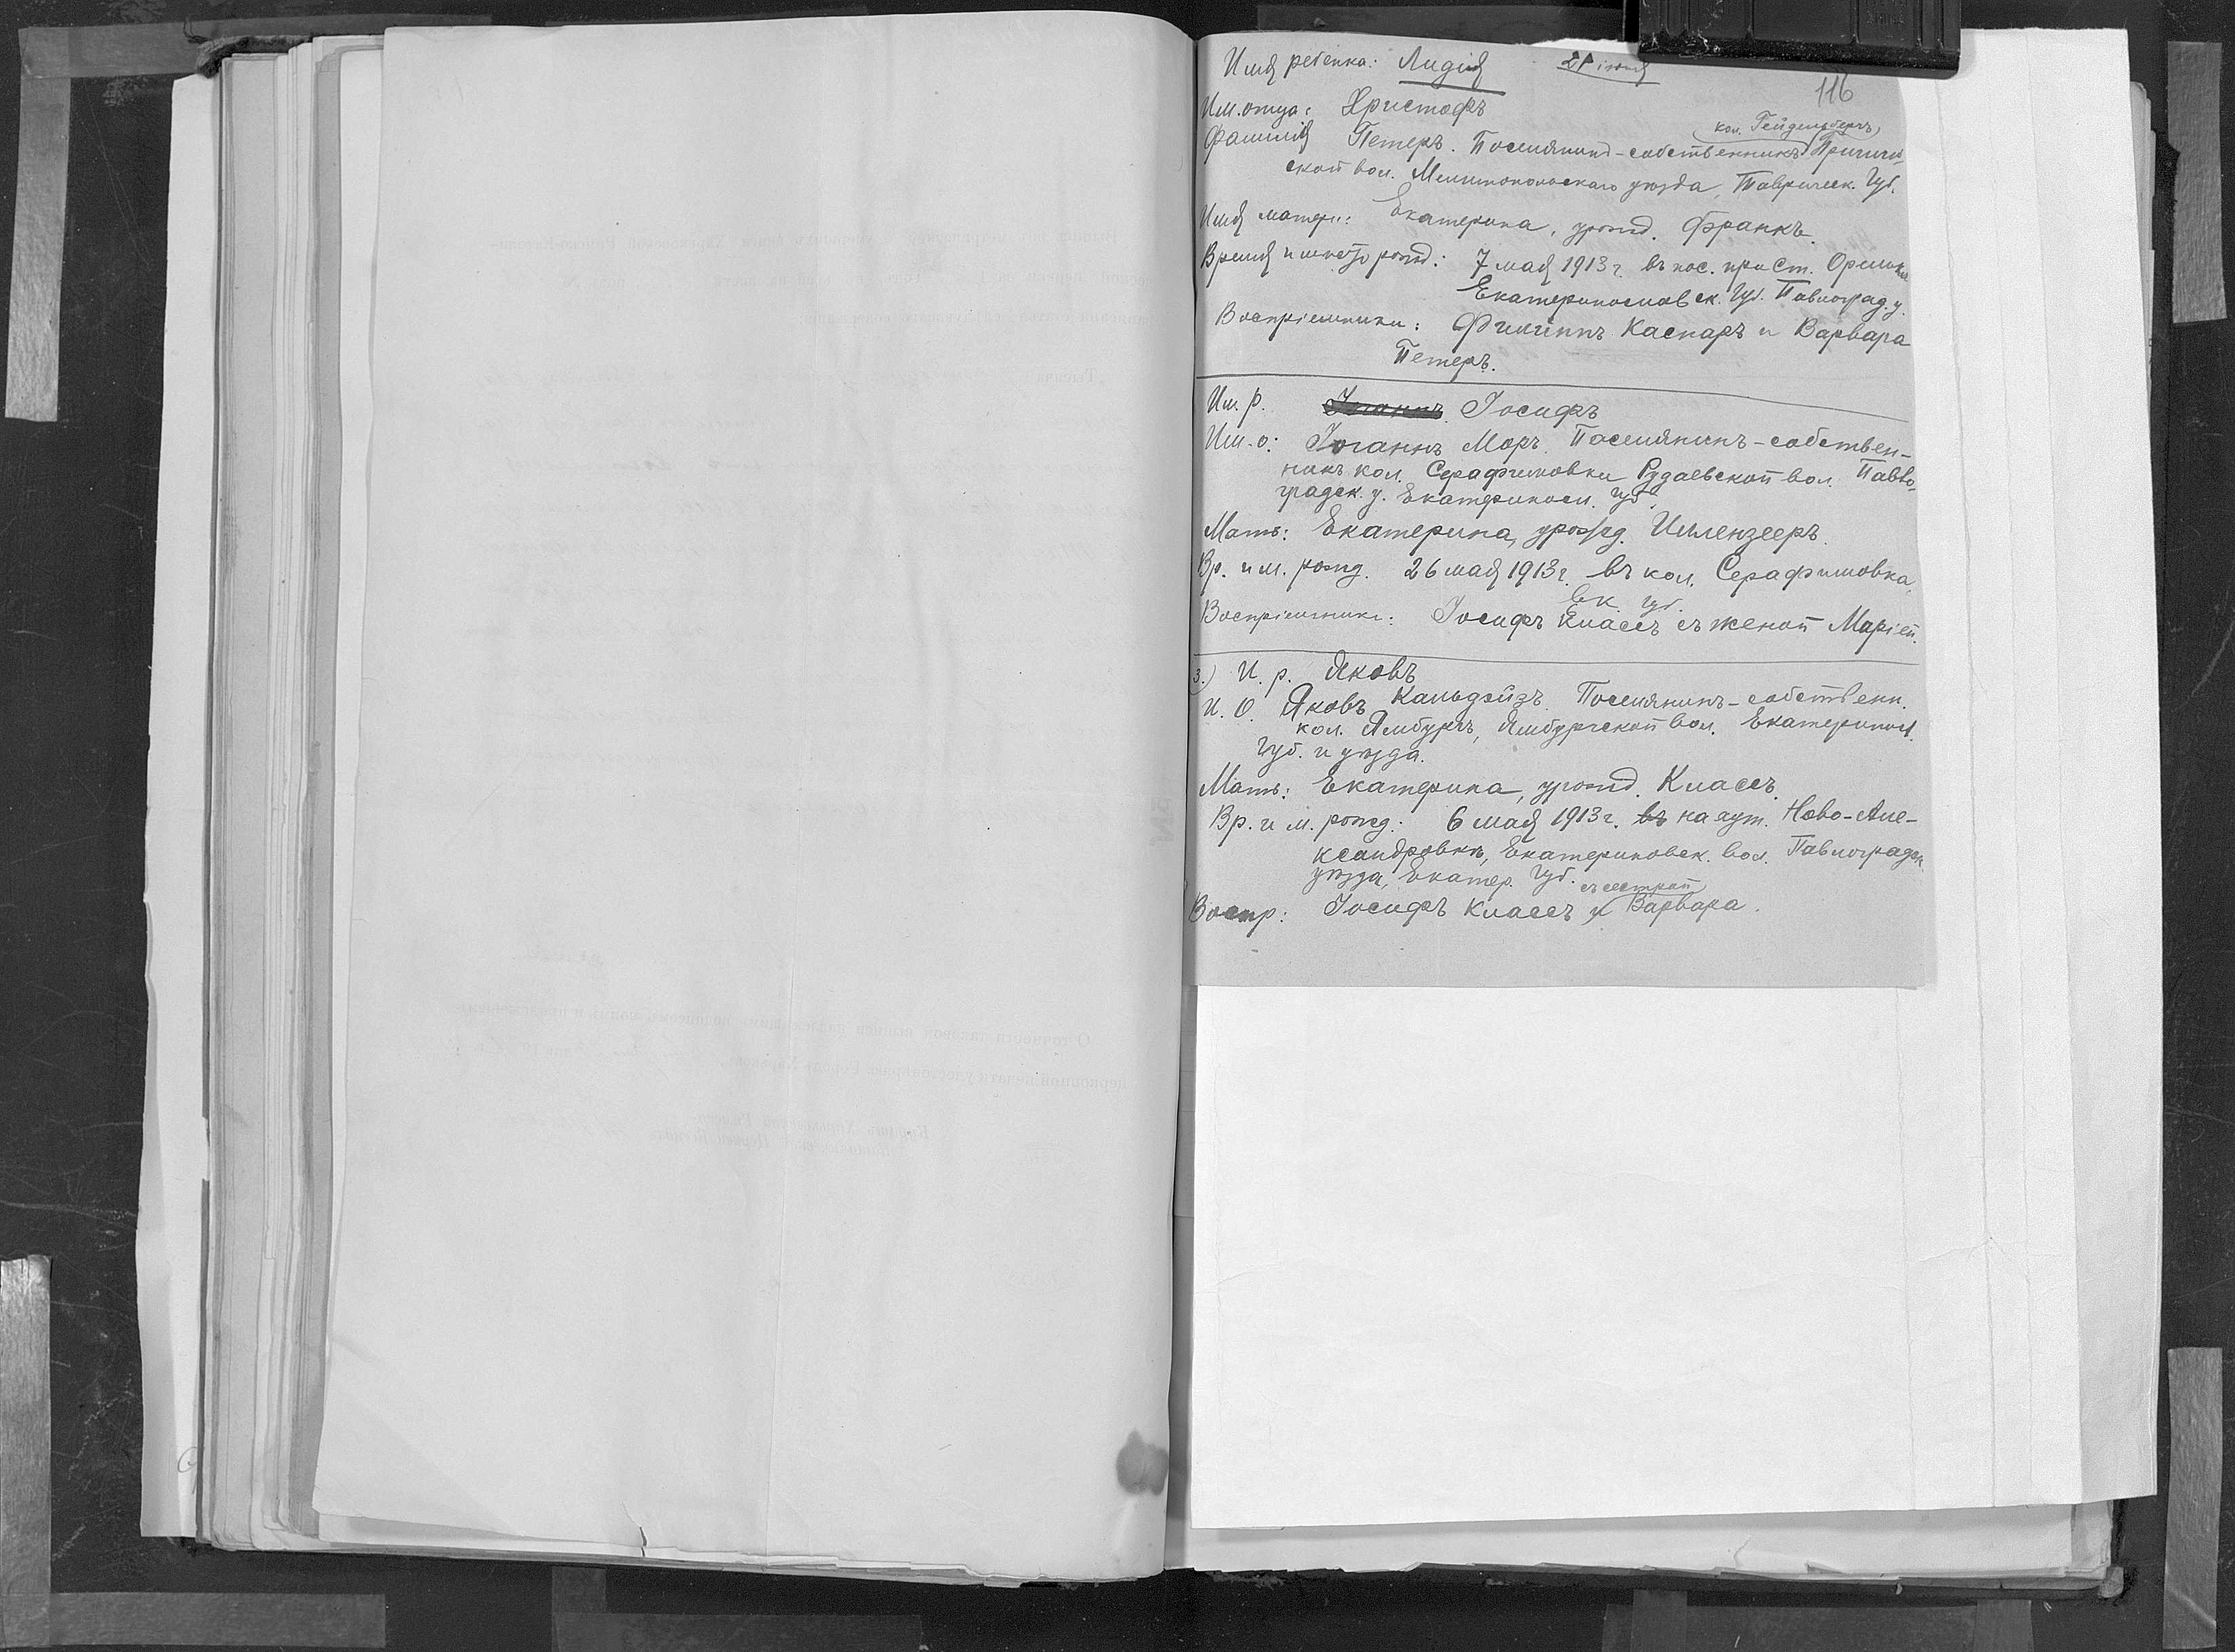 Имя ребенка: Лидія 21 іюня
116
Им. отца: Христофъ
кол. Гейдельбергъ
Фамилія Петеръ. Поселянинъ-собственникъ Пришиб-
ской вол. Мелитопольскаго уѣзда, Таврическ. Губ.
Имя матери: Екатерина, урожд. Франкъ.
Время и мѣсто рожд: 7 мая 1913 г. въ пос. при Ст.
Екатеринославск. Губ. Павлоград. у.
Воспріемники: Филиппъ Каспаръ и Варвара
Петеръ.
Им. р. Іоганнъ Іосифъ
Им. о: Іоганнъ Моръ. Поселянинъ-собствен-
никъ кол. Серафимовки Рудаевской вол. Павло-
градск. у. Екатериносл. губ.
Мать: Екатерина, урожд.
Вр. и м. рожд. 26 мая 1913 г. въ кол. Серафимовка,
Ек. губ.
Воспріемники: Іосифъ Классъ съ женой Маріей.
3.) И. р. Яковъ
И. О. Яковъ Кальдэйзъ. Поселянинъ-собственн.
кол. Ямбургъ, Ямбургской вол. Екатериносл.
Губ. и уѣзда.
Мать: Екатерина, урожд. Классъ.
Вр. и м. рожд: 6 мая 1913 г. въ на хут. Ново-Але-
ксандровкѣ, Екатериновск. вол. Павлоградск.
уѣзда, Екатер. Губ.
съ сестрой
Воспр: Іосифъ Классъ и Варвара.